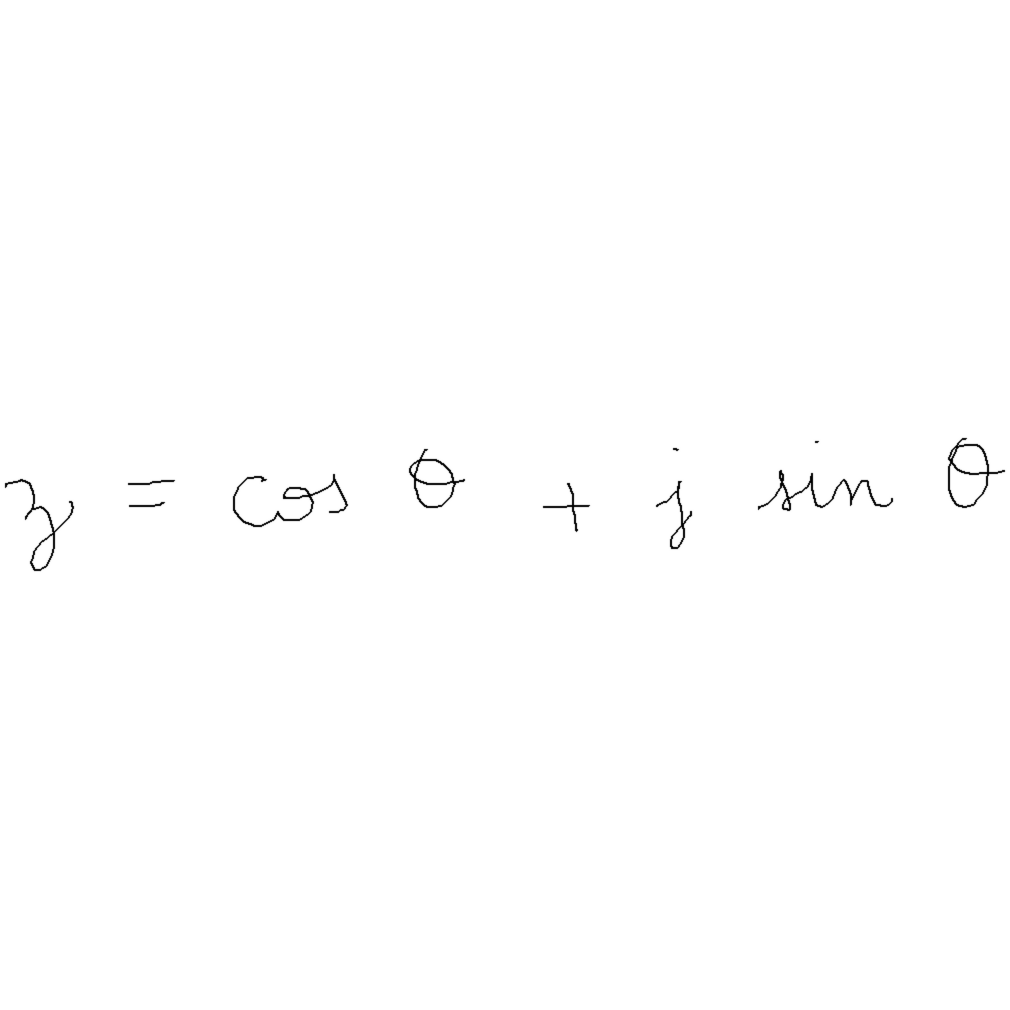 z = cos θ + j sin θ